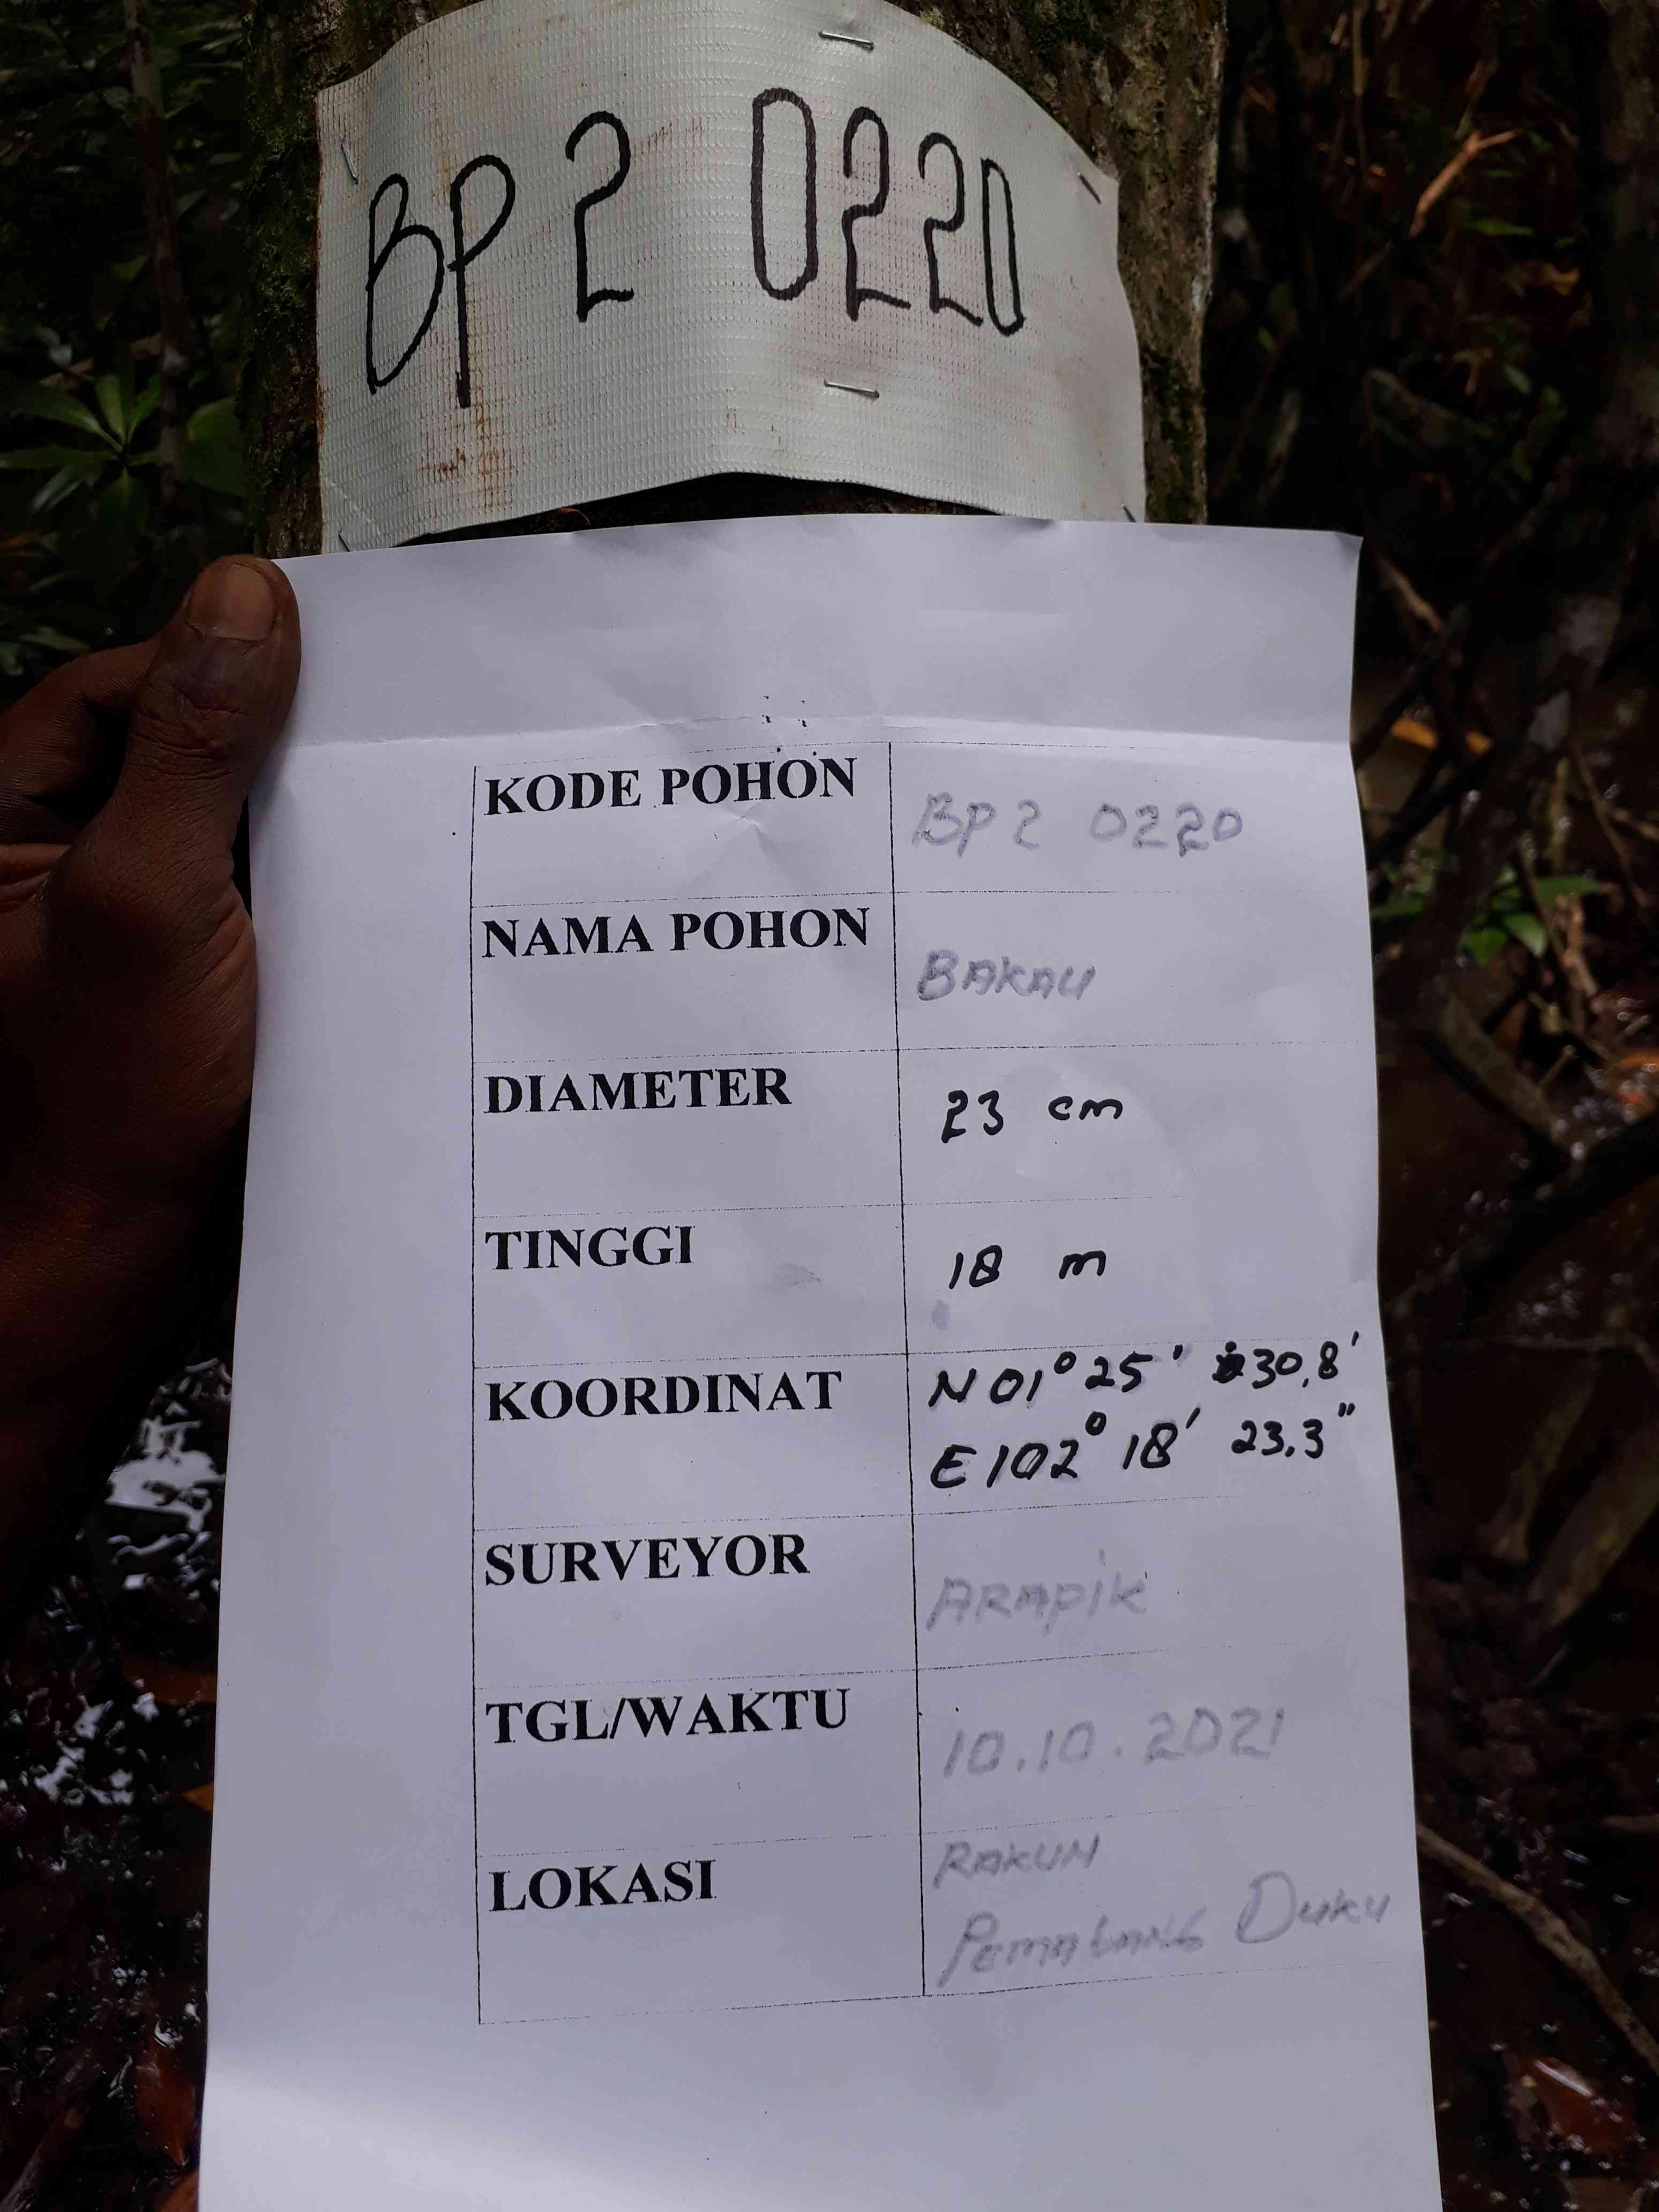 BP 2 0220
KODE POHON BP 2 0220
NAMA POHON BAKAU
DIAMETER 23 cm
TINGGI 18 m
KOORDINAT N 01° 25' 30,8'
E 102° 18' 23.3"
SURVEYOR ARAPIK
TGL/WAKTU 10.10.2021
LOKASI RAKUN
PEMATANG DUKU